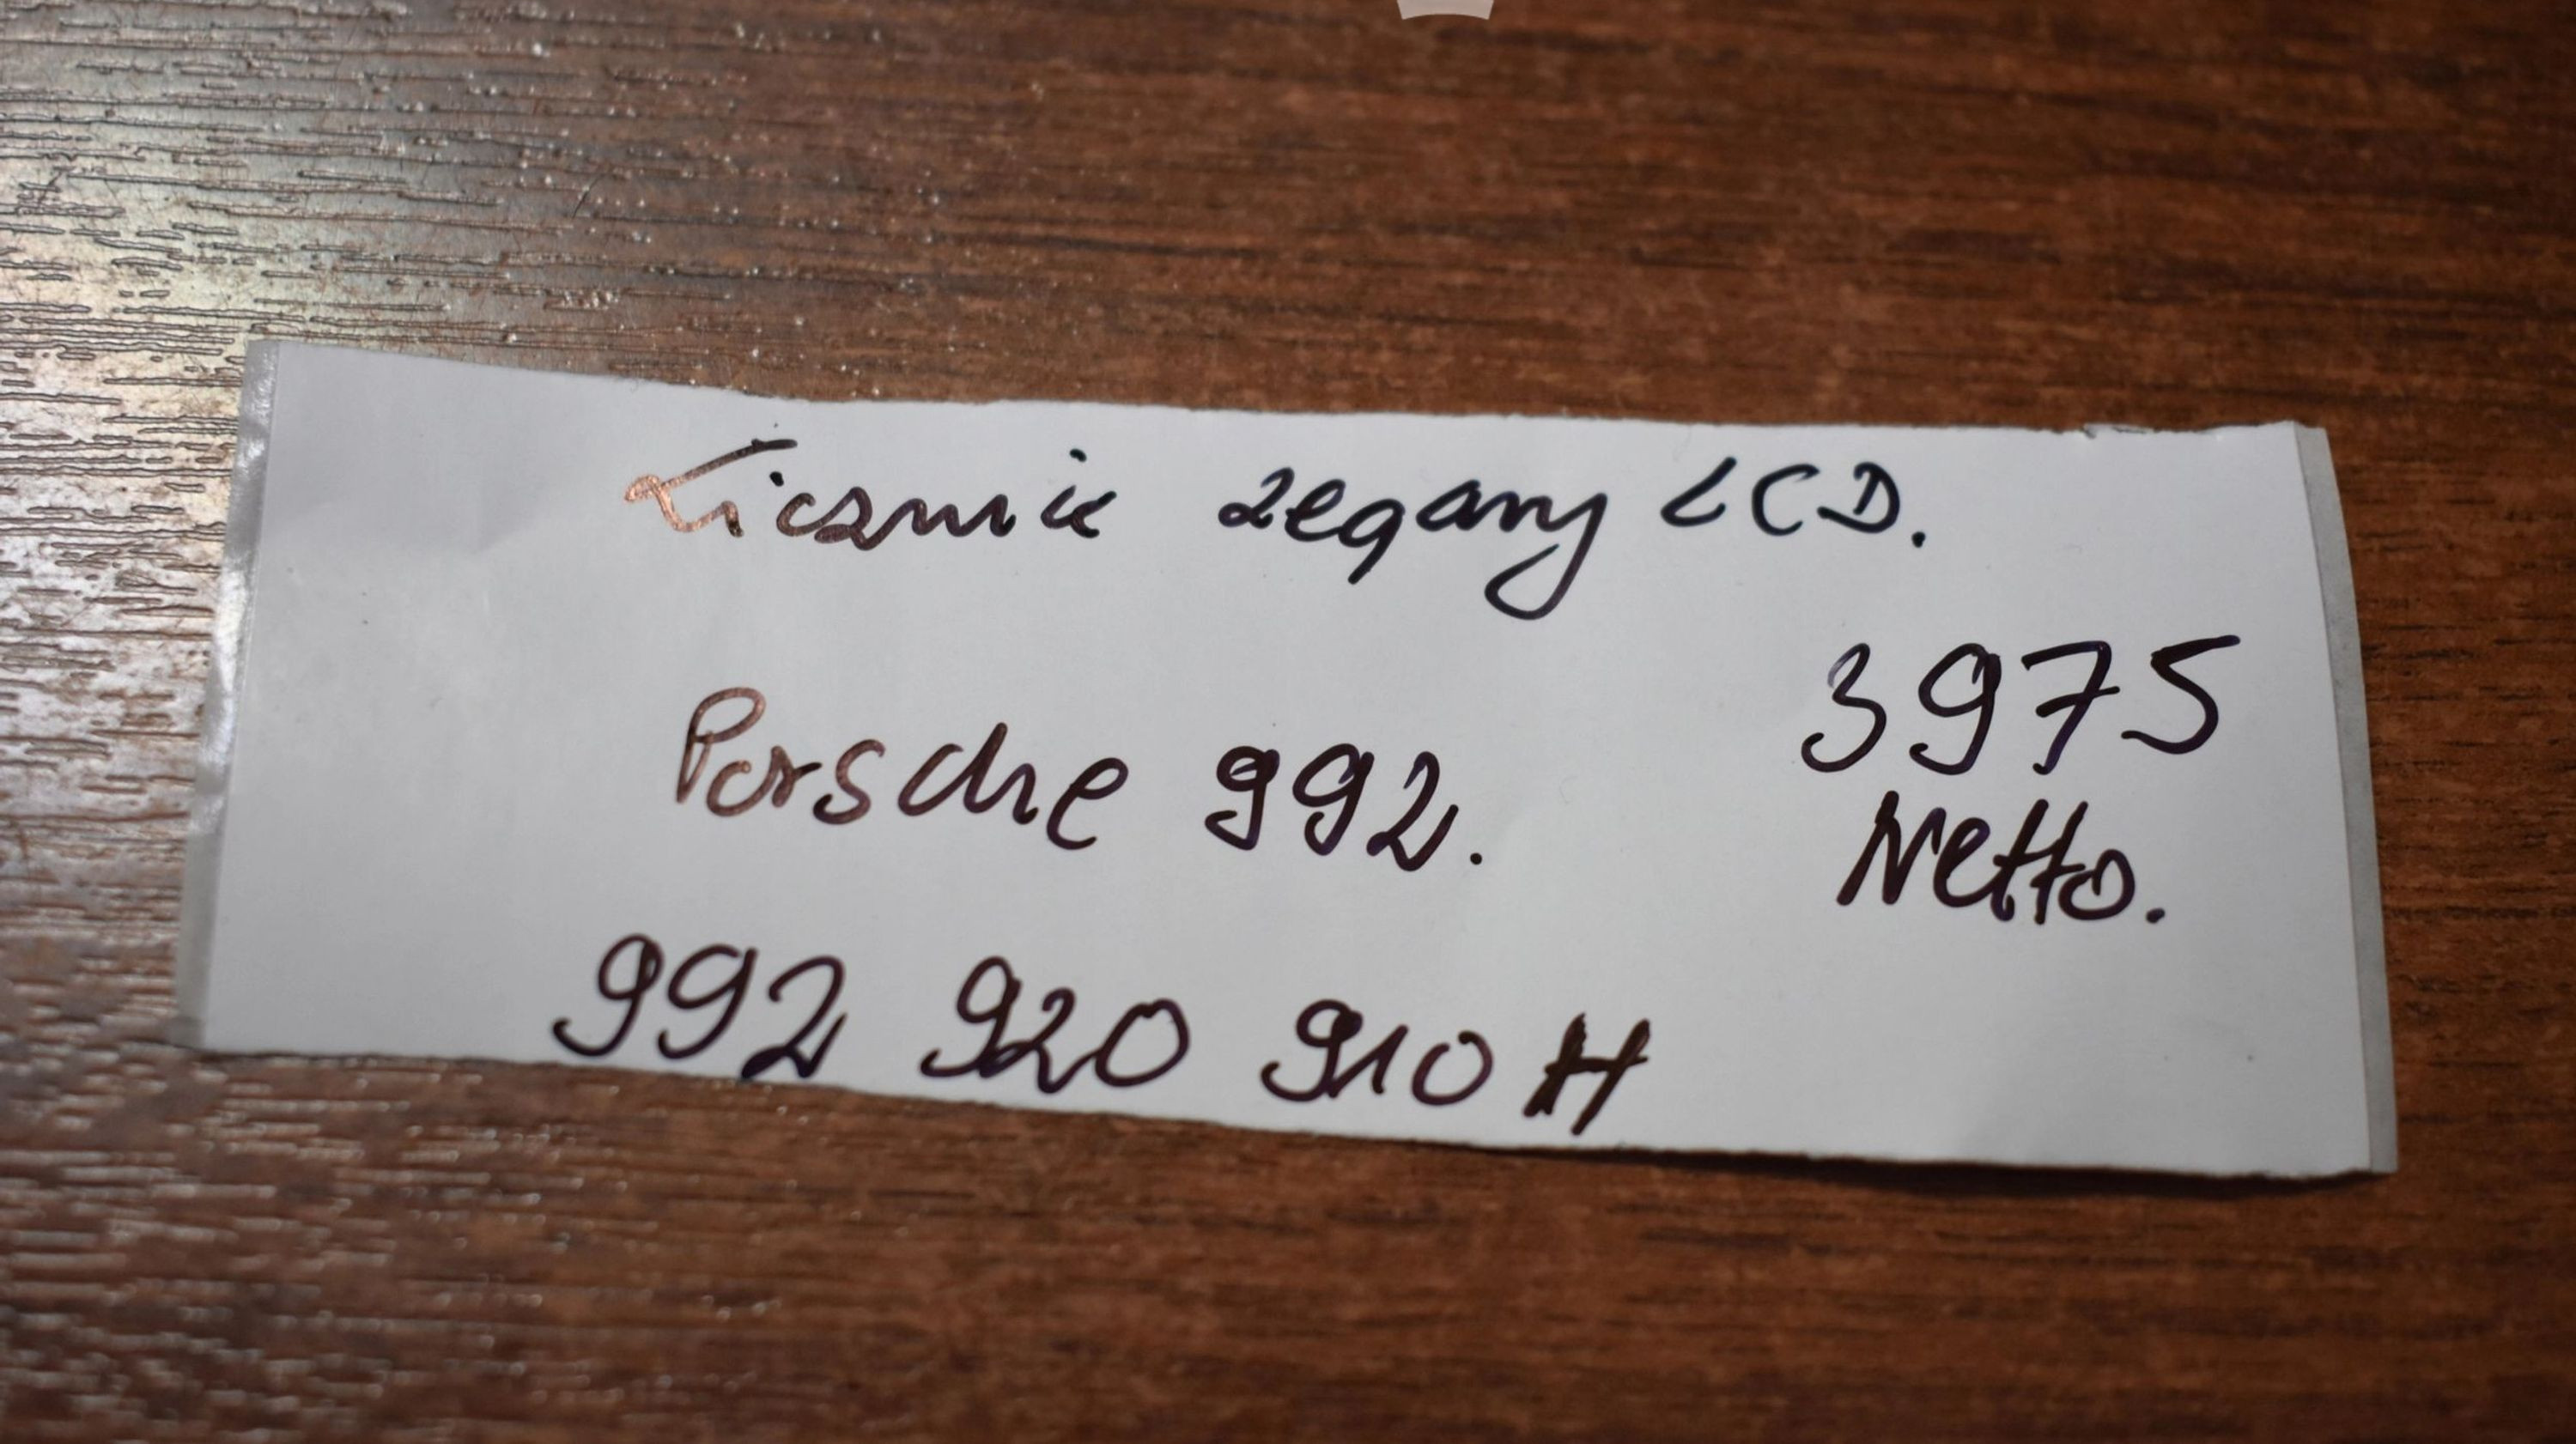 Licznik zegary LCD.
Porsche 992.
3975
Netto.
992 920 910 H